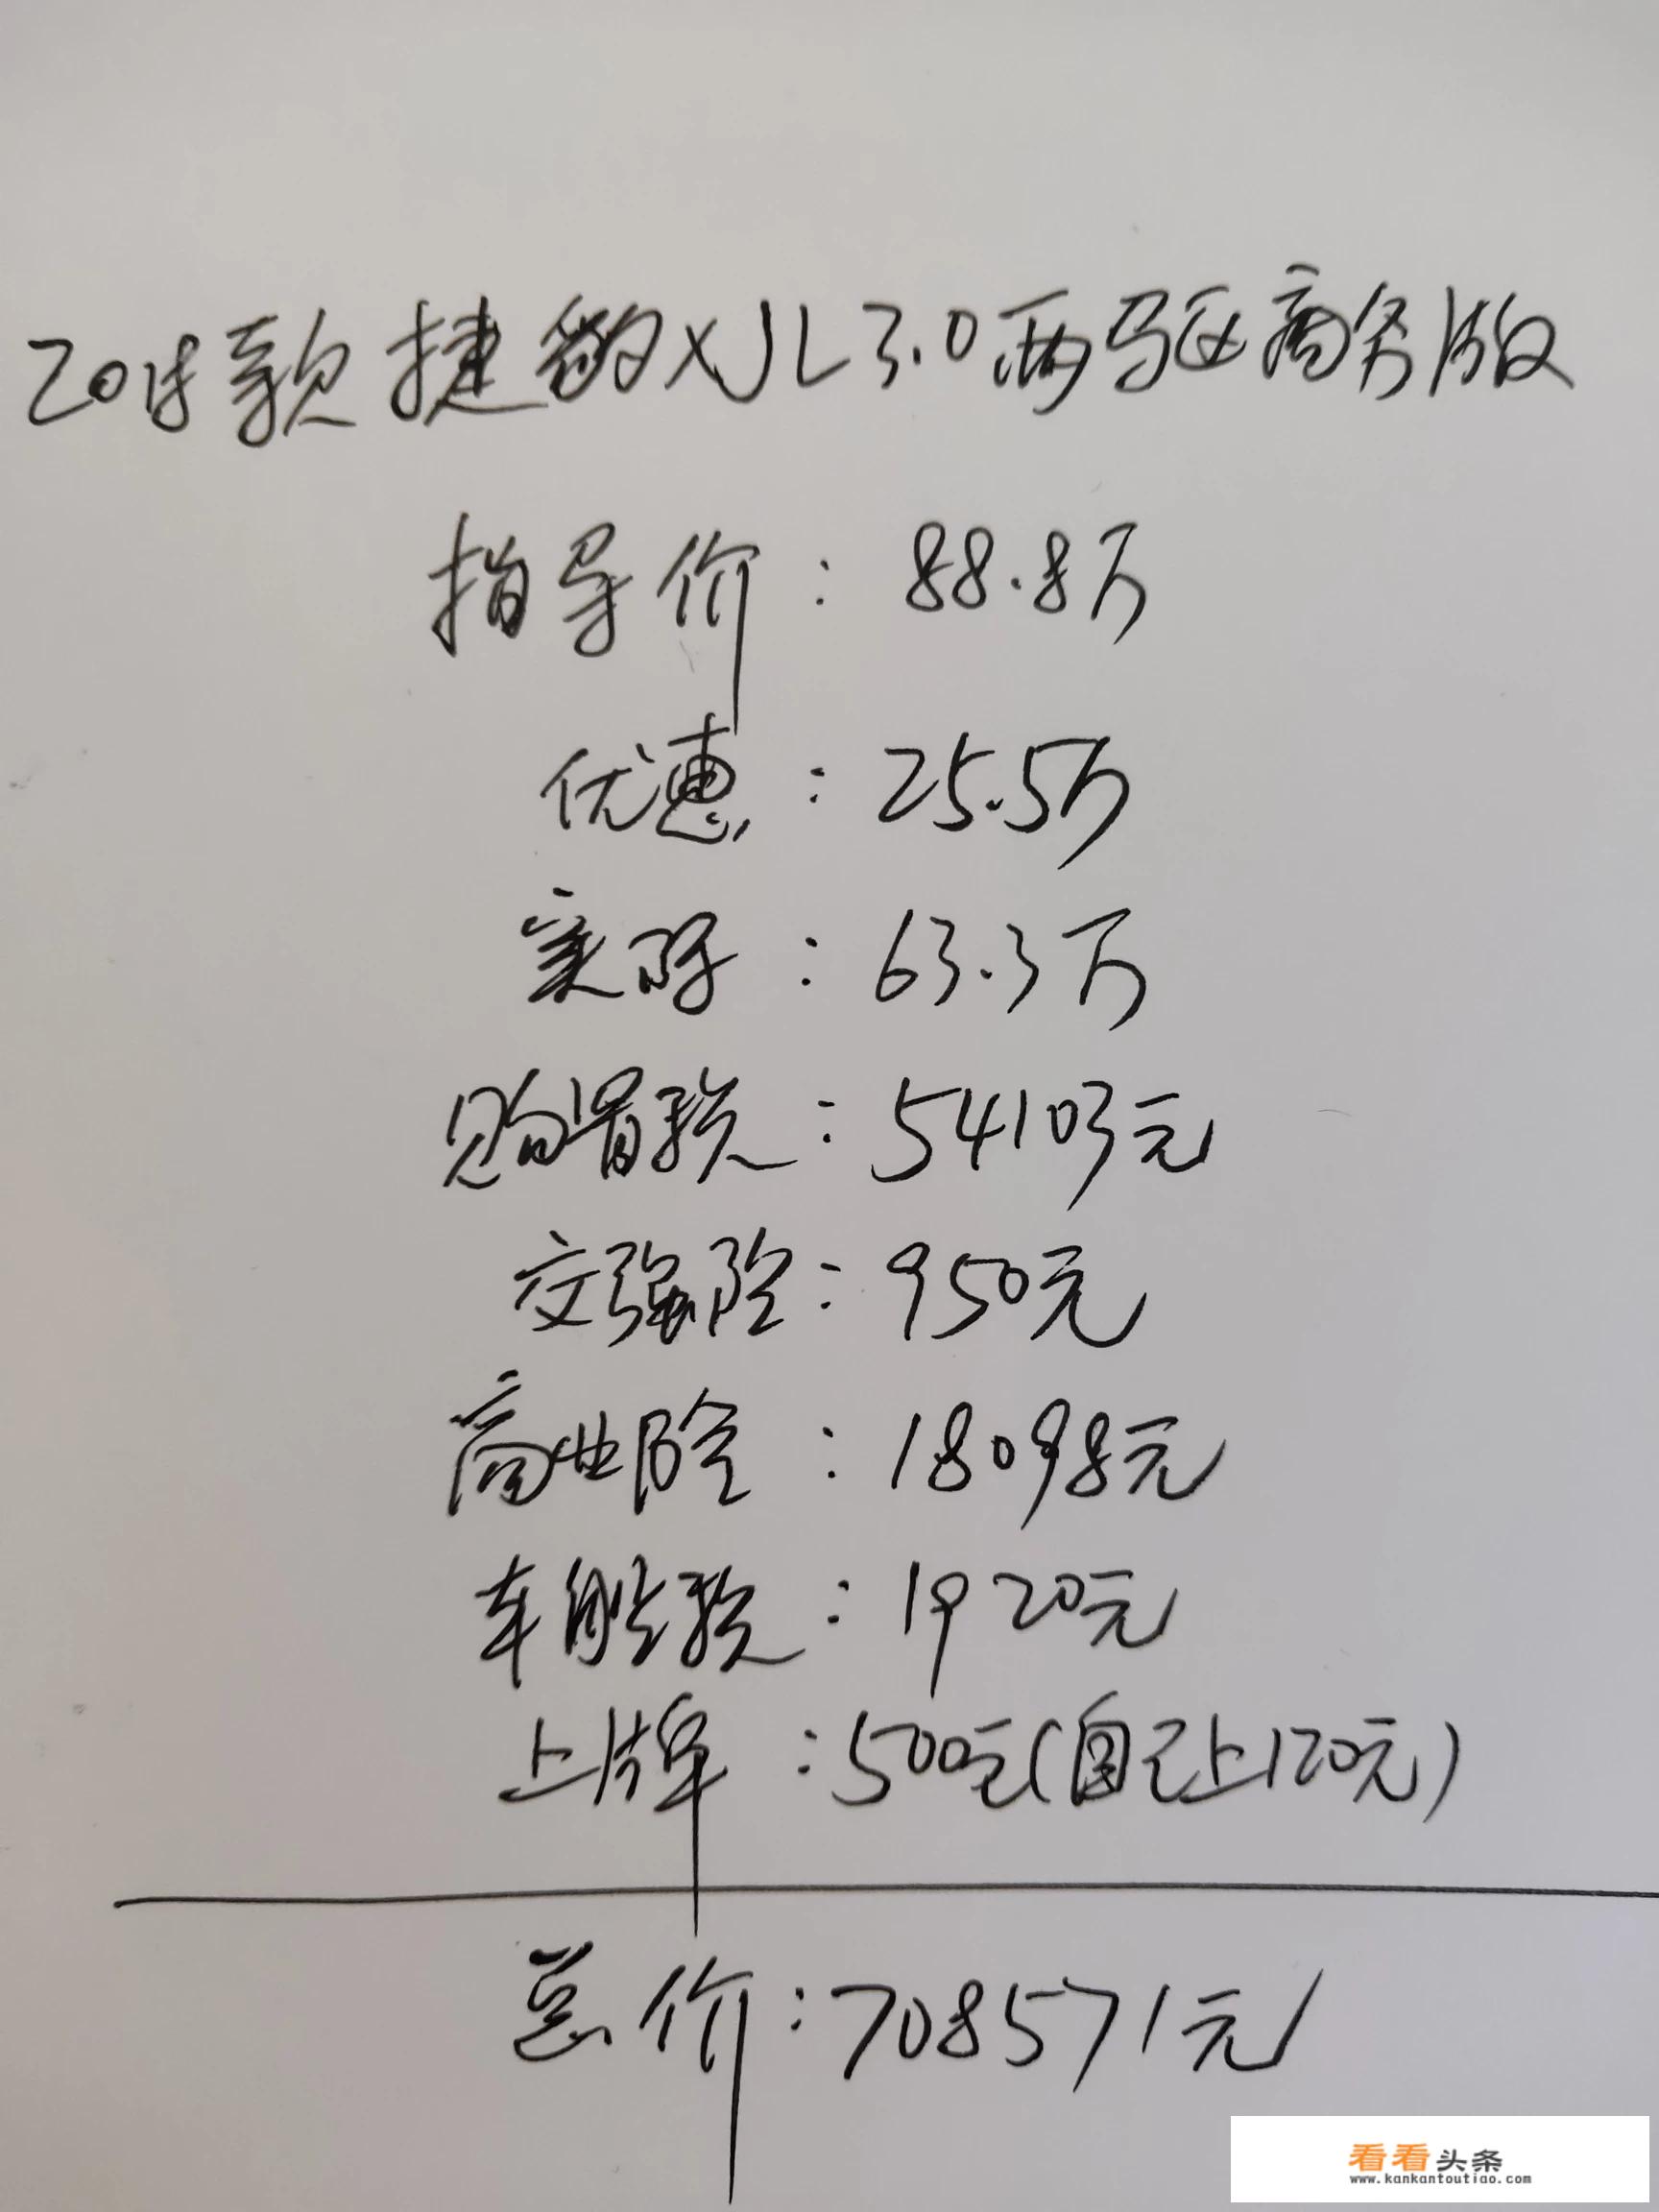 2018款捷豹XJL3.0两驱商务版
指导价:88.8万
优惠:25.5万
实际:63.3万
购置税:54103元
交强险:950元
商业险:18098元
车船税:1920元
上牌:500元(自己上120元)
总价:708571元
看看头条
www.kankantoutiao.com